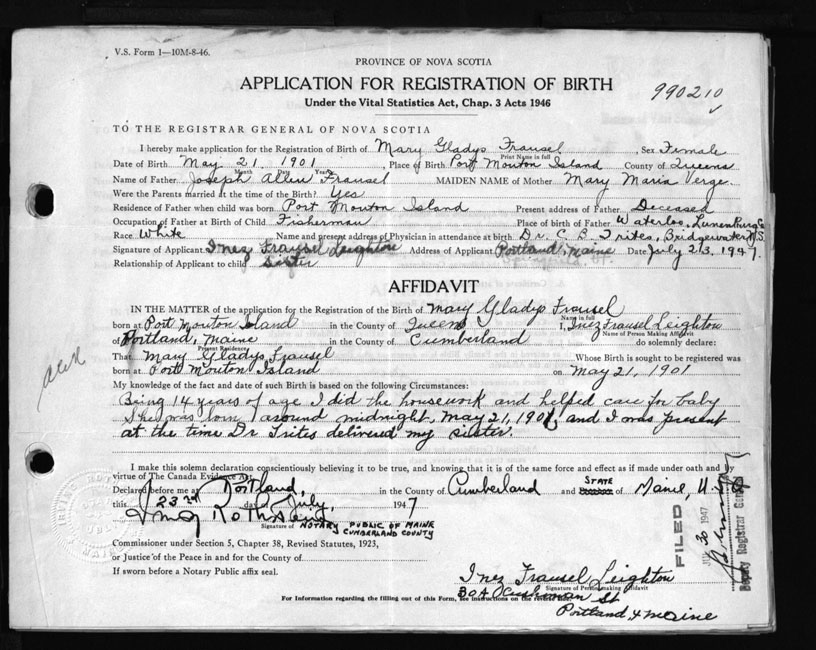 V.S. Form 1—10M-8-46.
PROVINCE OF NOVA SCOTIA
APPLICATION FOR REGISTRATION OF BIRTH
990210
Under the Vital Statistics Act, Chap. 3 Acts 1946
TO THE REGISTRAR GENERAL OF NOVA SCOTIA
I hereby make application for the Registration of Birth of Mary Gladys Frausel Sex Female
Print Name in full
Date of Birth May 21, 1901 Place of Birth Port Mouton Island County of Queens
Month Date Year
Name of Father Joseph Allen Frausel MAIDEN NAME of Mother Mary Maria Verge.
Were the Parents married at the time of the Birth? Yes
Residence of Father when child was born Port Mouton Island Present address of Father Deceased
Occupation of Father at Birth of Child Fisherman Place of birth of Father Waterloo, Lunenburg Co
Race White Name and present address of Physician in attendance at birth Dr. C. B. Trites, Bridgewater N.S.
Signature of Applicant Inez Frausel Leighton Address of Applicant Portland, Maine Date July 23, 1947.
Relationship of Applicant to child Sister
AFFIDAVIT
IN THE MATTER of the application for the Registration of the Birth of Mary Gladys Frausel
Name in full
born at Port Mouton Island in the County of Queens I, Inez Frausel Leighton
Name of Person Making Affidavit
of Portland, Maine in the County of Cumberland do solemnly declare:
Present Residence
That Mary Gladys Frausel Whose Birth is sought to be registered was
born at Port Mouton Island on May 21, 1901
My knowledge of the fact and date of such Birth is based on the following Circumstances:
Being 14 years of age I did the housework and helped care for baby
She was born around midnight, May 21, 1901, and I was present
at the time Dr Trites delivered my sister.
I make this solemn declaration conscientiously believing it to be true, and knowing that it is of the same force and effect as if made under oath and by
virtue of The Canada Evidence Act.
Declared before me at Portland, in the County of Cumberland and STATE of Maine, U.S.
this 23rd day of July, 1947
Signature of NOTARY PUBLIC OF MAINE
CUMBERLAND COUNTY
Commissioner under Section 5, Chapter 38, Revised Statutes, 1923,
or Justice of the Peace in and for the County of
If sworn before a Notary Public affix seal.
FILED
30 1947
Deputy Registrar General
Inez Frausel Leighton
Signature of Person making Affidavit
30A Cushman St
For Information regarding the filling out of this Form, see instructions on the reverse side.
Portland, Maine